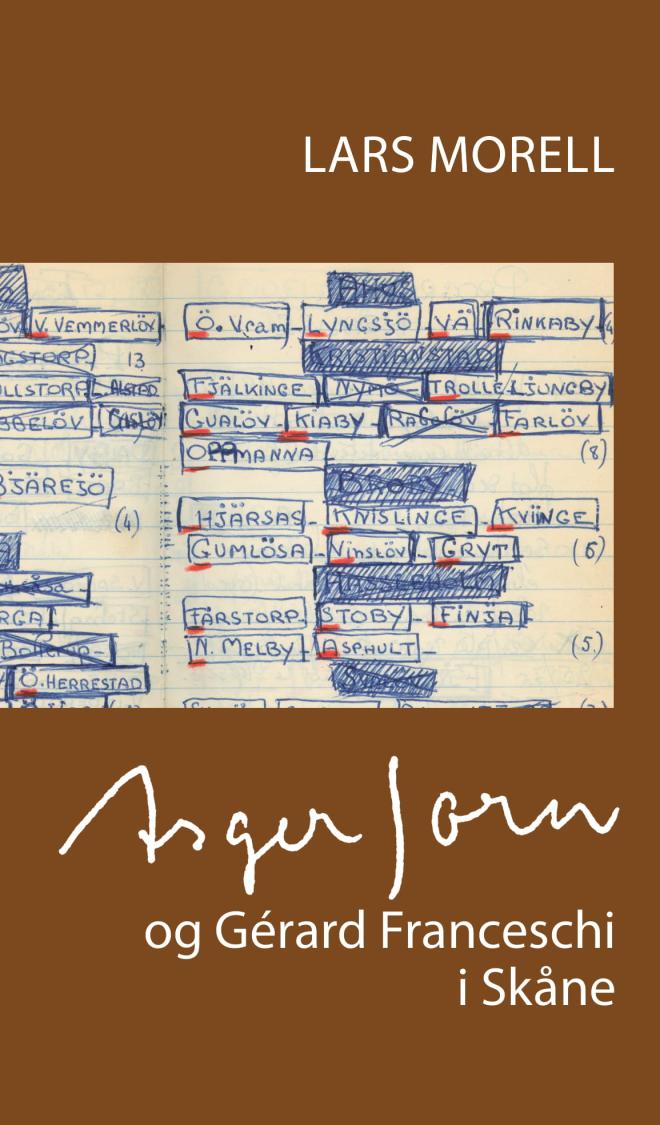 LARS MORELL
V. VEMMERLÖV
GSTORP 13
ALSTAD
BJÄRESJÖ
(4)
Ö. HERRESTAD
Ö. Vram - LYNGSJÖ VÄ RINKABY
KRISTIANSTAD
FJÄLKINGE NYMÖ - TROLLE LJUNGBY
GUALÖV - KIABY - RABELÖV FARLÖV
OPPMANNA (8)
BROBY
HJÄRSAS - KNISLINGE - KVIINGE
GUMLÖSA - Vinslöv - GRYT (6)
HÄSSLEHOLM
FÄRSTORP. STOBY - FINJA
N. MELBY - ASPHULT - (5)
Asger Jorn
og Gérard Franceschi
i Skåne